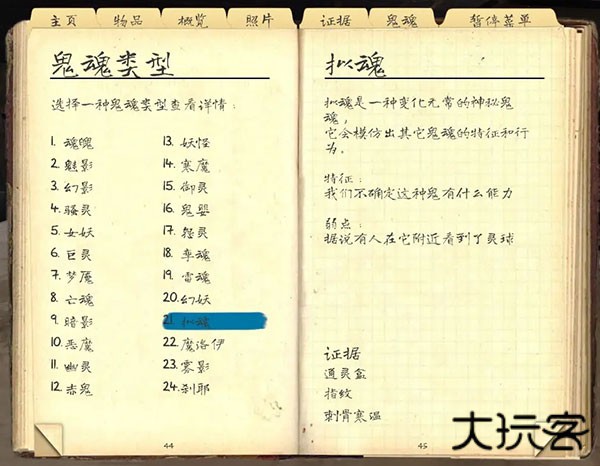 主页 物品 概览 照片 证据 鬼魂 暂停菜单
鬼魂类型
选择一种鬼魂类型查看详情：
1. 魂魄
2. 魅影
3. 幻影
4. 骚灵
5. 女妖
6. 巨灵
7. 梦魇
8. 亡魂
9. 暗影
10. 恶魔
11. 幽灵
12. 赤鬼
13. 妖怪
14. 寒魔
15. 御灵
16. 鬼婴
17. 怨灵
18. 孪魂
19. 雷魂
20. 幻妖
21. 拟魂
22. 魔洛伊
23. 雾影
24. 刹耶
44
拟魂
拟魂是一种变化无常的神秘鬼
魂，
它会模仿出其它鬼魂的特征和行
为。
特征：
我们不确定这种鬼有什么能力
弱点：
据说有人在它附近看到了灵球
证据
通灵盒
指纹
刺骨寒温
45
大玩客